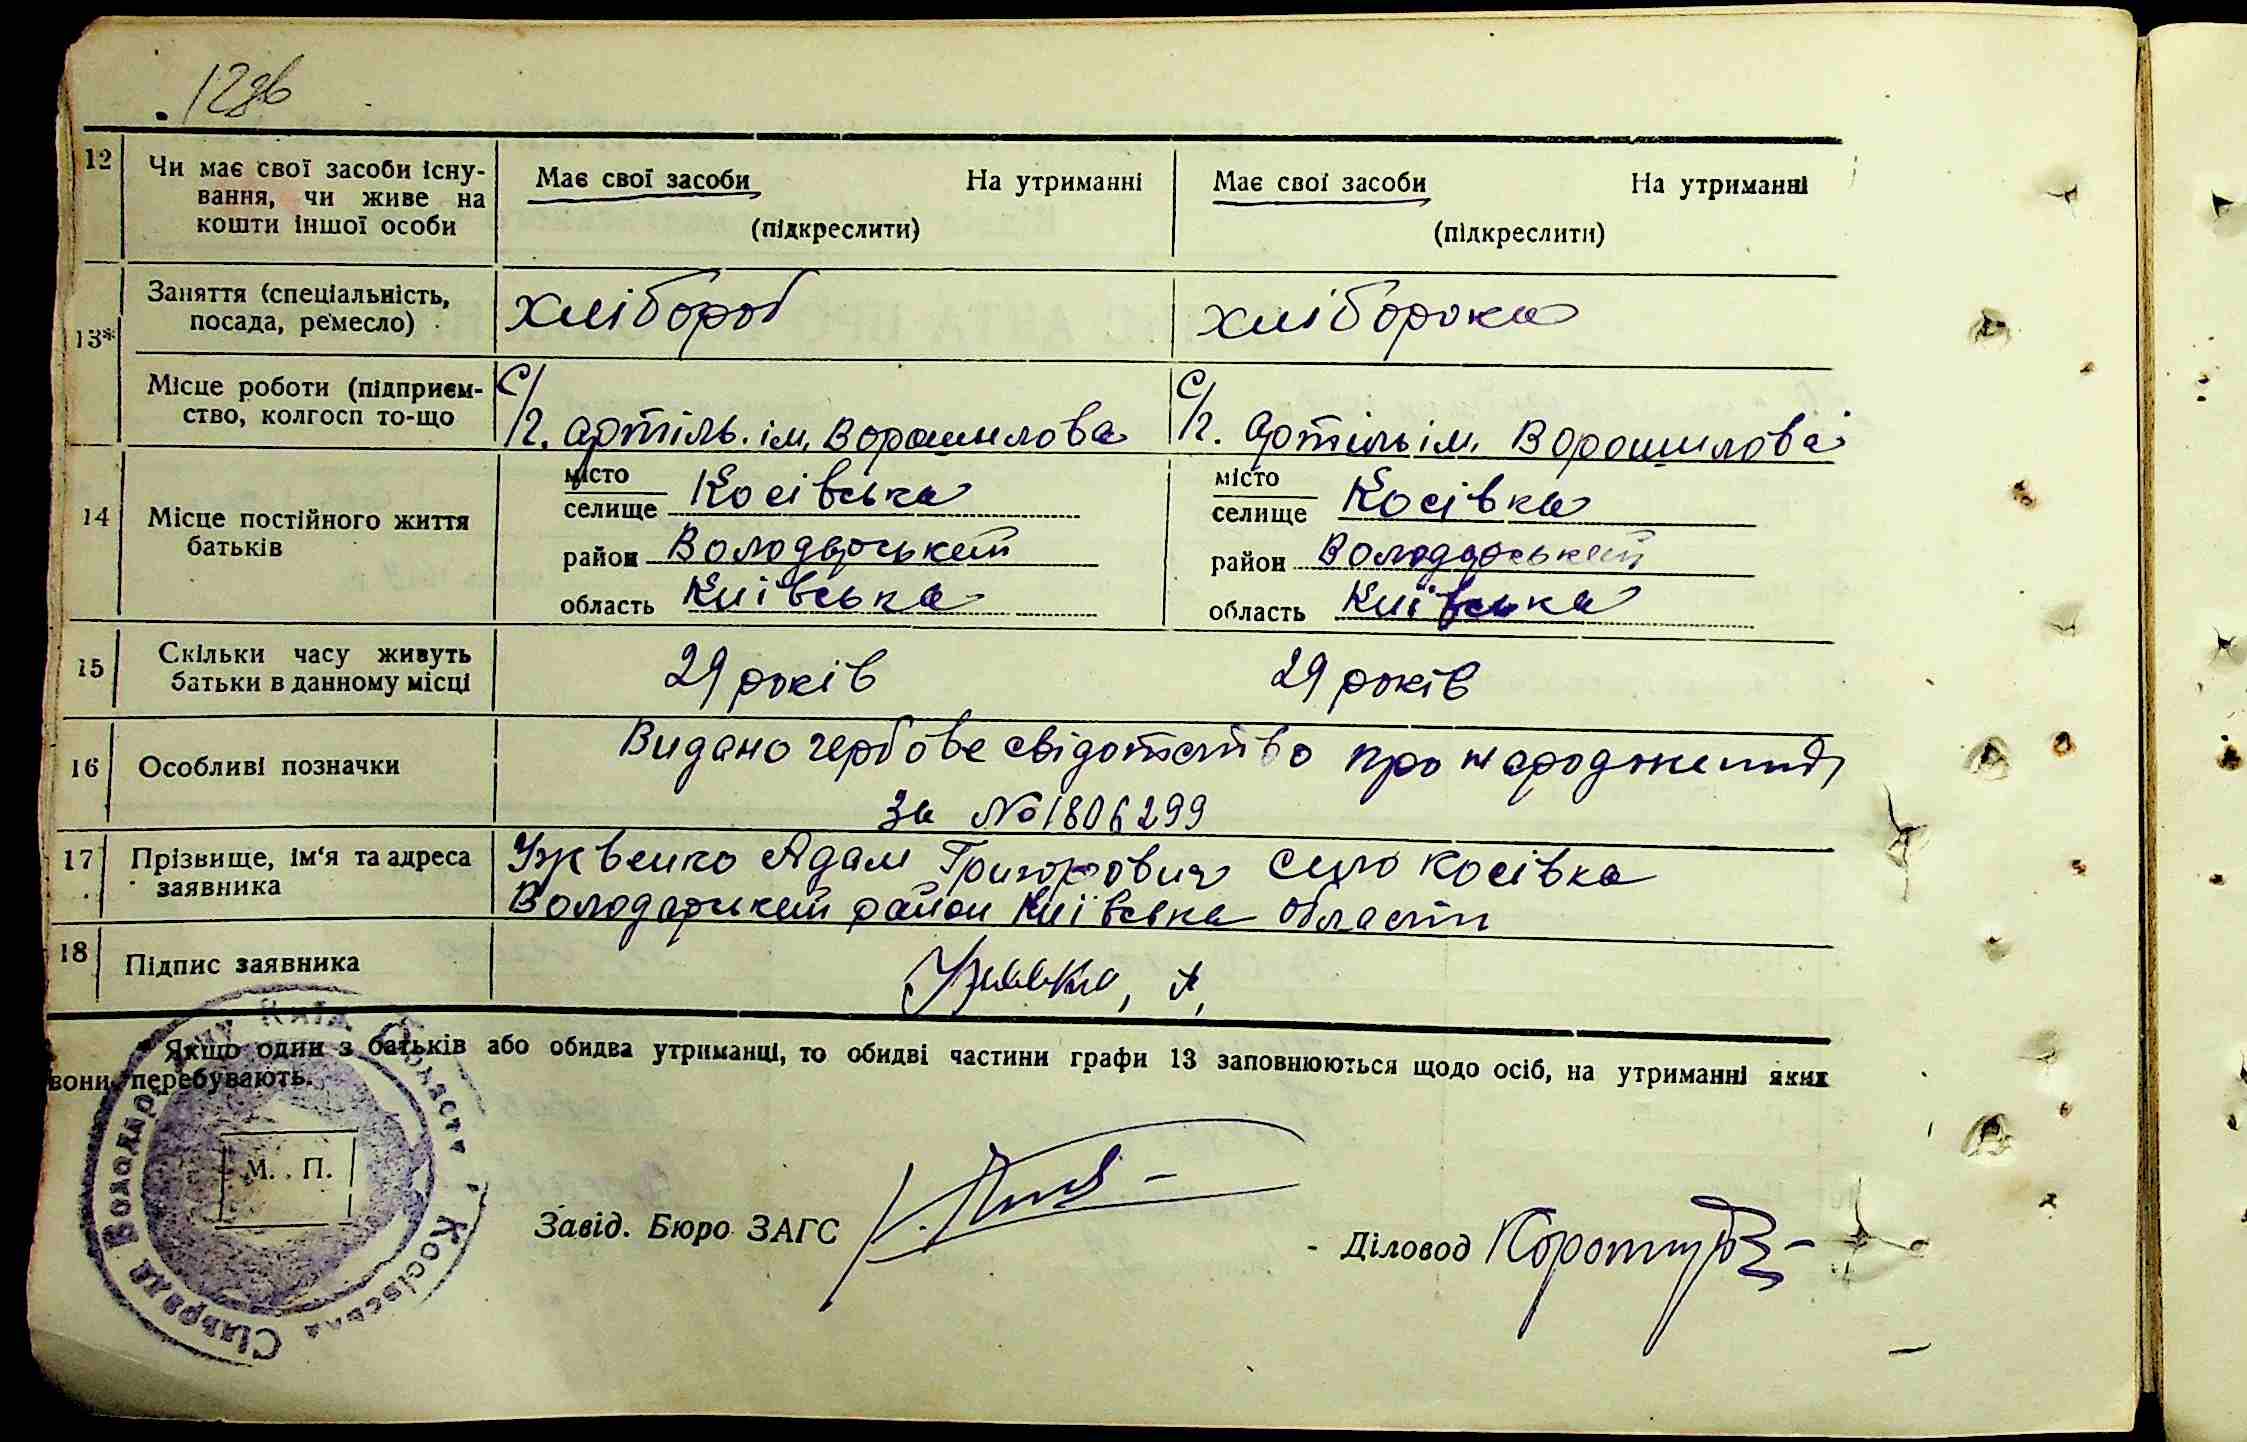 128б
12 Чи має свої засоби існу-
вання, чи живе на
кошти іншої особи
Має свої засоби На утриманні
(підкреслити)
Має свої засоби На утриманні
(підкреслити)
13*
Заняття (спеціальність,
посада, ремесло)
хлібороб
хліборобка
Місце роботи (підприєм-
ство, колгосп то-що
С/г. артіль. ім. Ворошилова
С/г. артіль ім. Ворошилова
14 Місце постійного життя
батьків
місто
селище Косівська
район Володарський
область Київська
місто
селище Косівка
район Володарський
область Київська
15 Скільки часу живуть
батьки в данному місці
29 років 29 років
16 Особливі позначки
Видано гербове свідотство про народження
за №1806299
17 Прізвище, ім'я та адреса
заявника
Ужвенко Адам Григорович село Косівка
Володарський район Київська області
18 Підпис заявника
А,
* Якщо один з батьків або обидва утриманці, то обидві частини графи 13 заповнюються щодо осіб, на утриманні яких
вони перебувають.
М. П.
Косівська Сільрада Володар
Завід. Бюро ЗАГС
Діловод